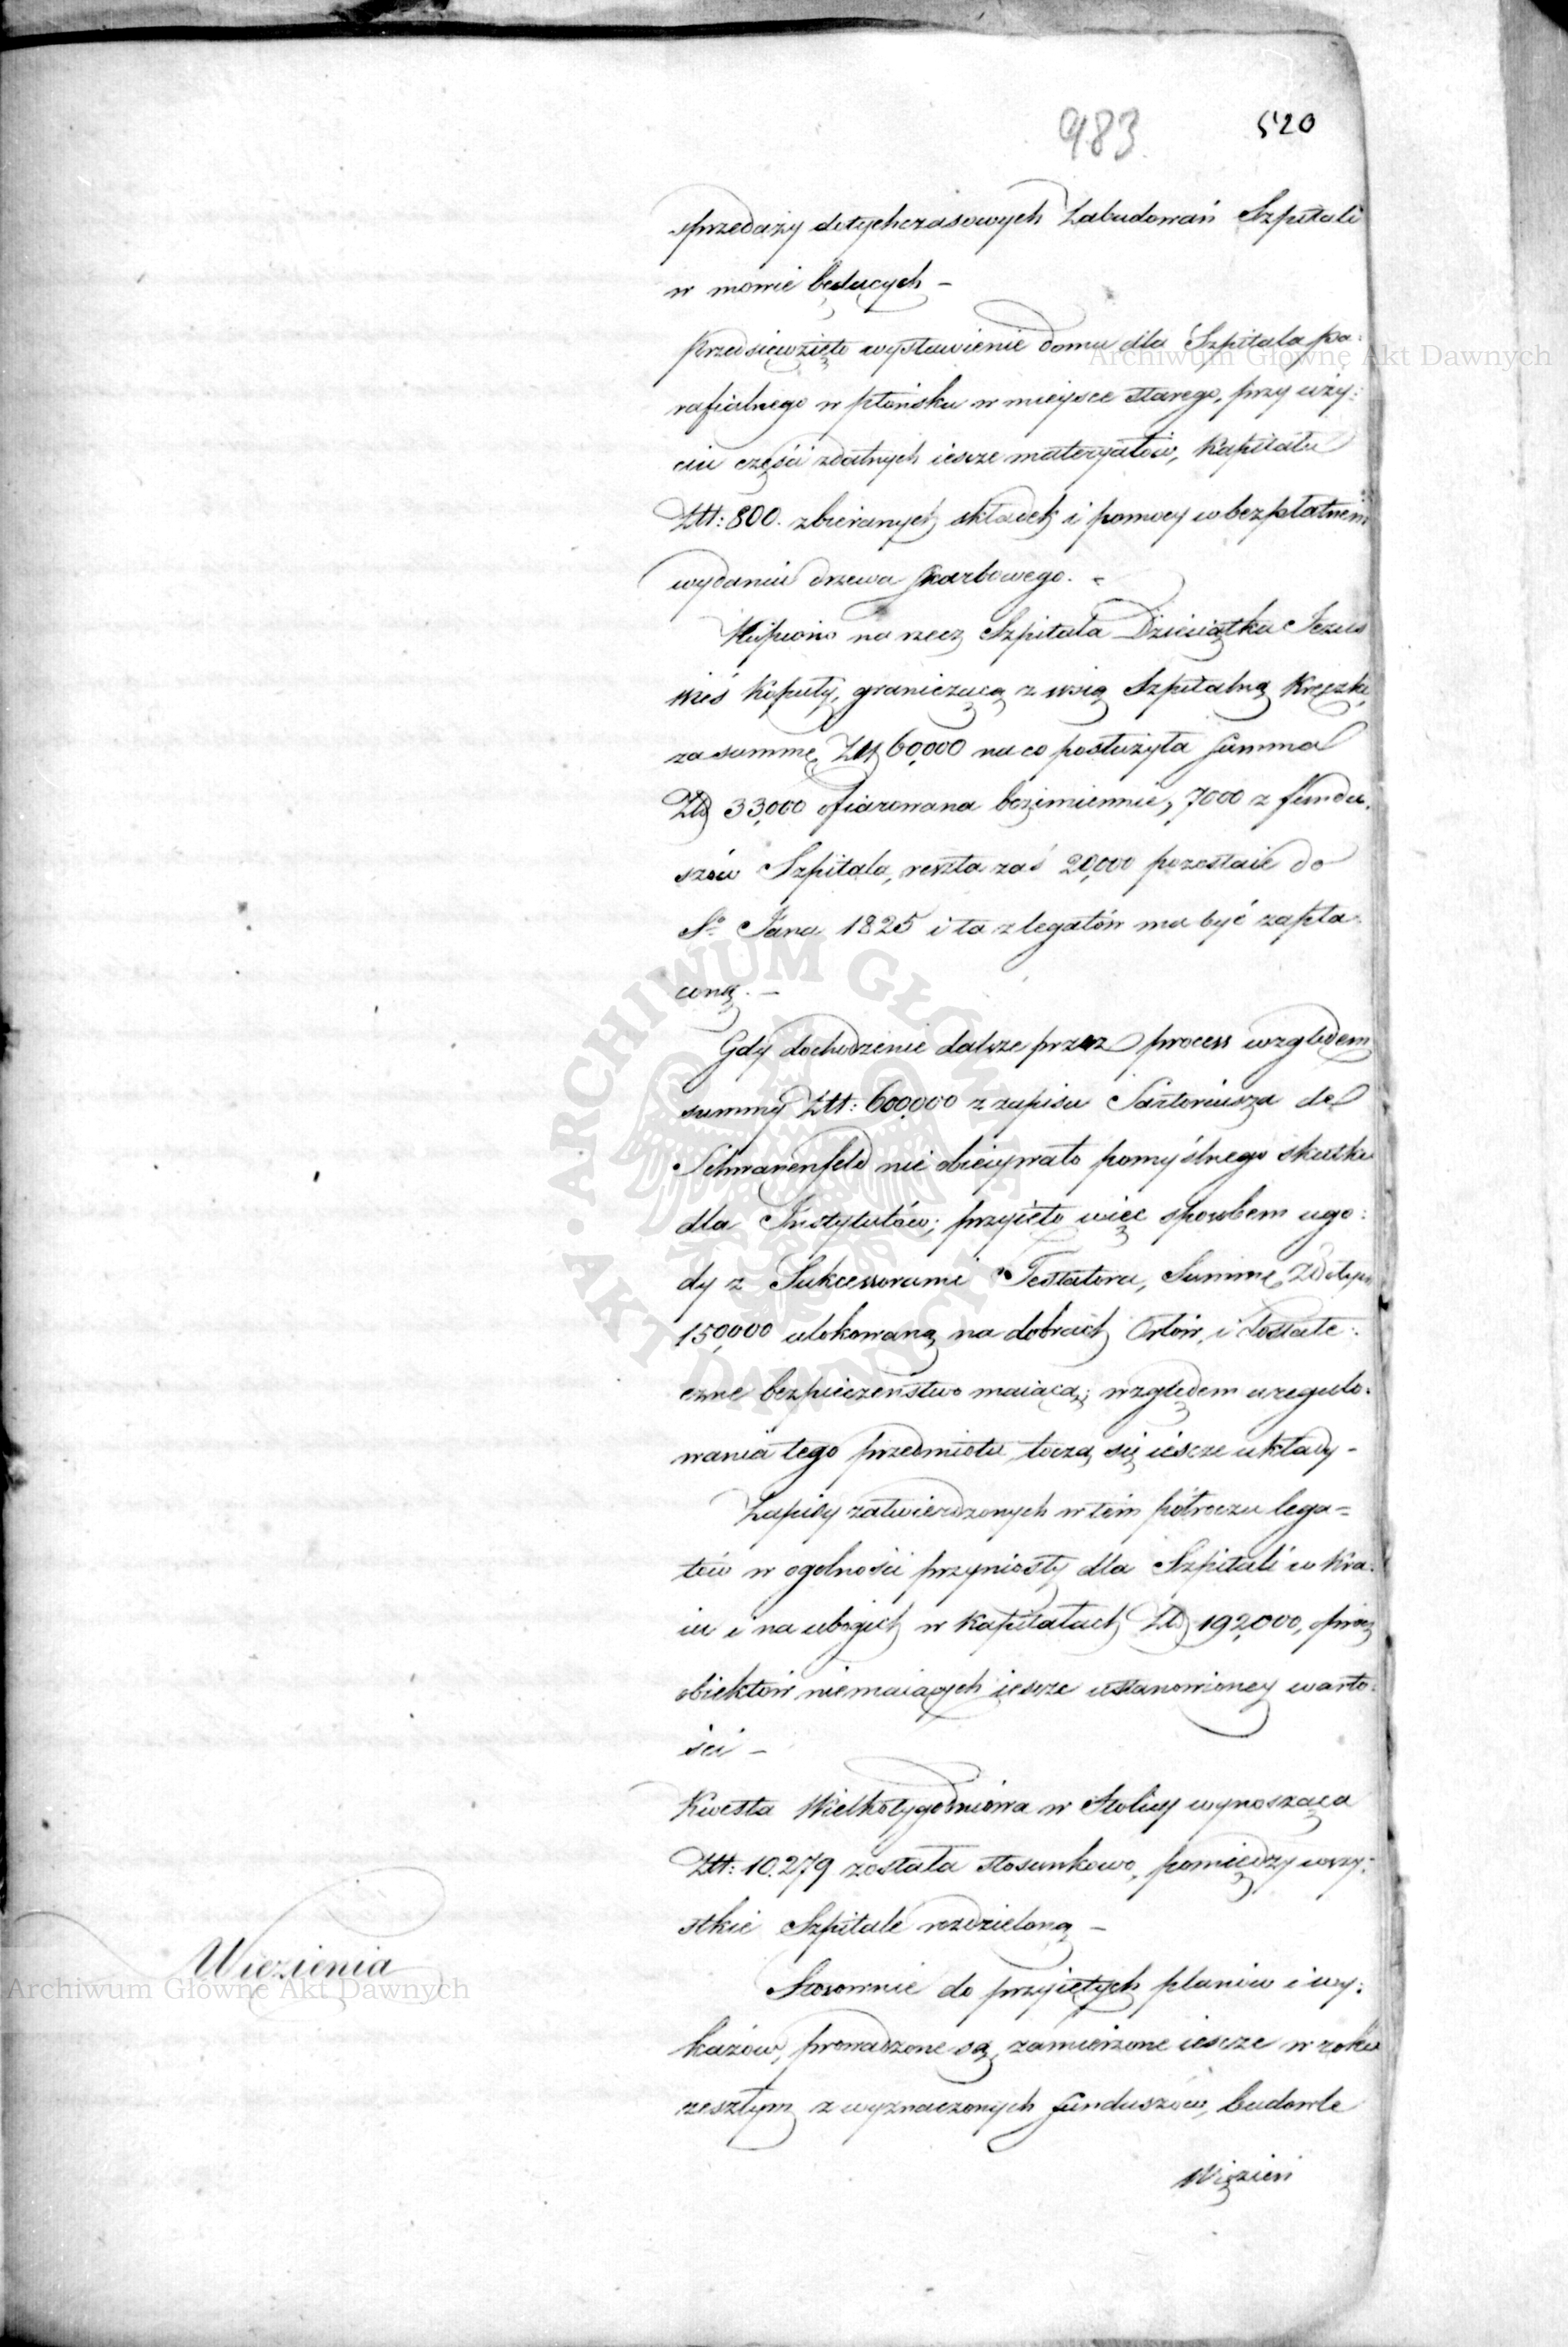 983 520
sprzedaży dotychczasowych Zabudowań Szpitali
w mowie będących –
Przedsięwzięto wystawienie domu dla Szpitala pa:
rafialnego w Płońsku w mieysce starego, przy uży:
ciu części zdatnych ieszcze materyałów, Kapitału
Złł: 800. zbieranych składek i pomocy w bezpłatnem
wydaniu drzewa skarbowego. –
Kupiono na rzecz Szpitala Dzieciątka Jezus
wieś Koputy, graniczącą z wsią Szpitalną Kręczki,
za summę Złł 60,000 na co posłużyła summa
Zł 33,000 ofiarowana bezimiennie, 7000 z fundu:
szów Szpitala, reszta zaś 20,000 pozostaie do
So Jana 1825 i ta z legatów ma być zapła:
coną. –
Gdy dochodzenie dalsze przez process względem
summy Złł: 600,000 z zapisu Sartoriusza de
Schwanenfeld nie obiecywało pomyślnego skutku
dla Instytutów; przyięto więc sposobem ugo:
dy z Sukcessorami Testatora, Summę Złotych
150,000 ulokowaną na dobrach Orłów, i dostate:
czne bezpieczeństwo maiącą; względem uregulo:
wania tego przedmiotu toczą się ieszcze układy –
Zapisy zatwierdzonych w tem półroczu lega=
tów w ogólności przyniosły dla Szpitali w Kra:
iu i na ubogich w Kapitałach Zł 192,000, oprócz
obiektów niemaiących ieszcze ustanowioney warto:
ści –
Kwesta Wielkotygodniowa w Stolicy wynosząca
Złł: 10.279 została stosunkowo pomiędzy wszy:
stkie Szpitale rozdzieloną –
Więzienia
Stosownie do przyiętych planów i wy:
kazów, prowadzone są zamierzone ieszcze w roku
zeszłym z wyznaczonych funduszów, budowle
Więzień
Archiwum Główne Akt Dawnych
Archiwum Główne Akt Dawnych
ARCHIWUM GŁÓWNE AKT DAWNYCH